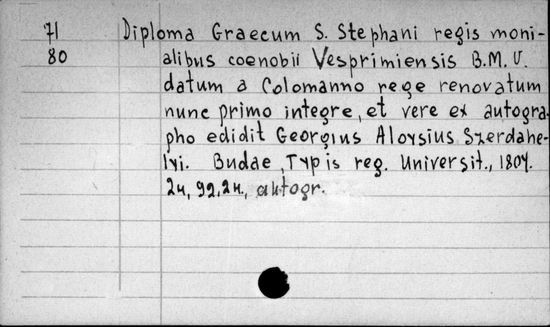 71 Diploma Graecum S. Stephani regis moni-
80 alibus coenobii Vesprimiensis B.M.V.
datum a Colomanno rege renovatum
nunc primo integre, et vere ex autogra-
pho edidit Georgius Aloysius Szerdahe-
lyi. Budae, Typis reg. Universit., 1804.
2n, 92, 2n., autogr.